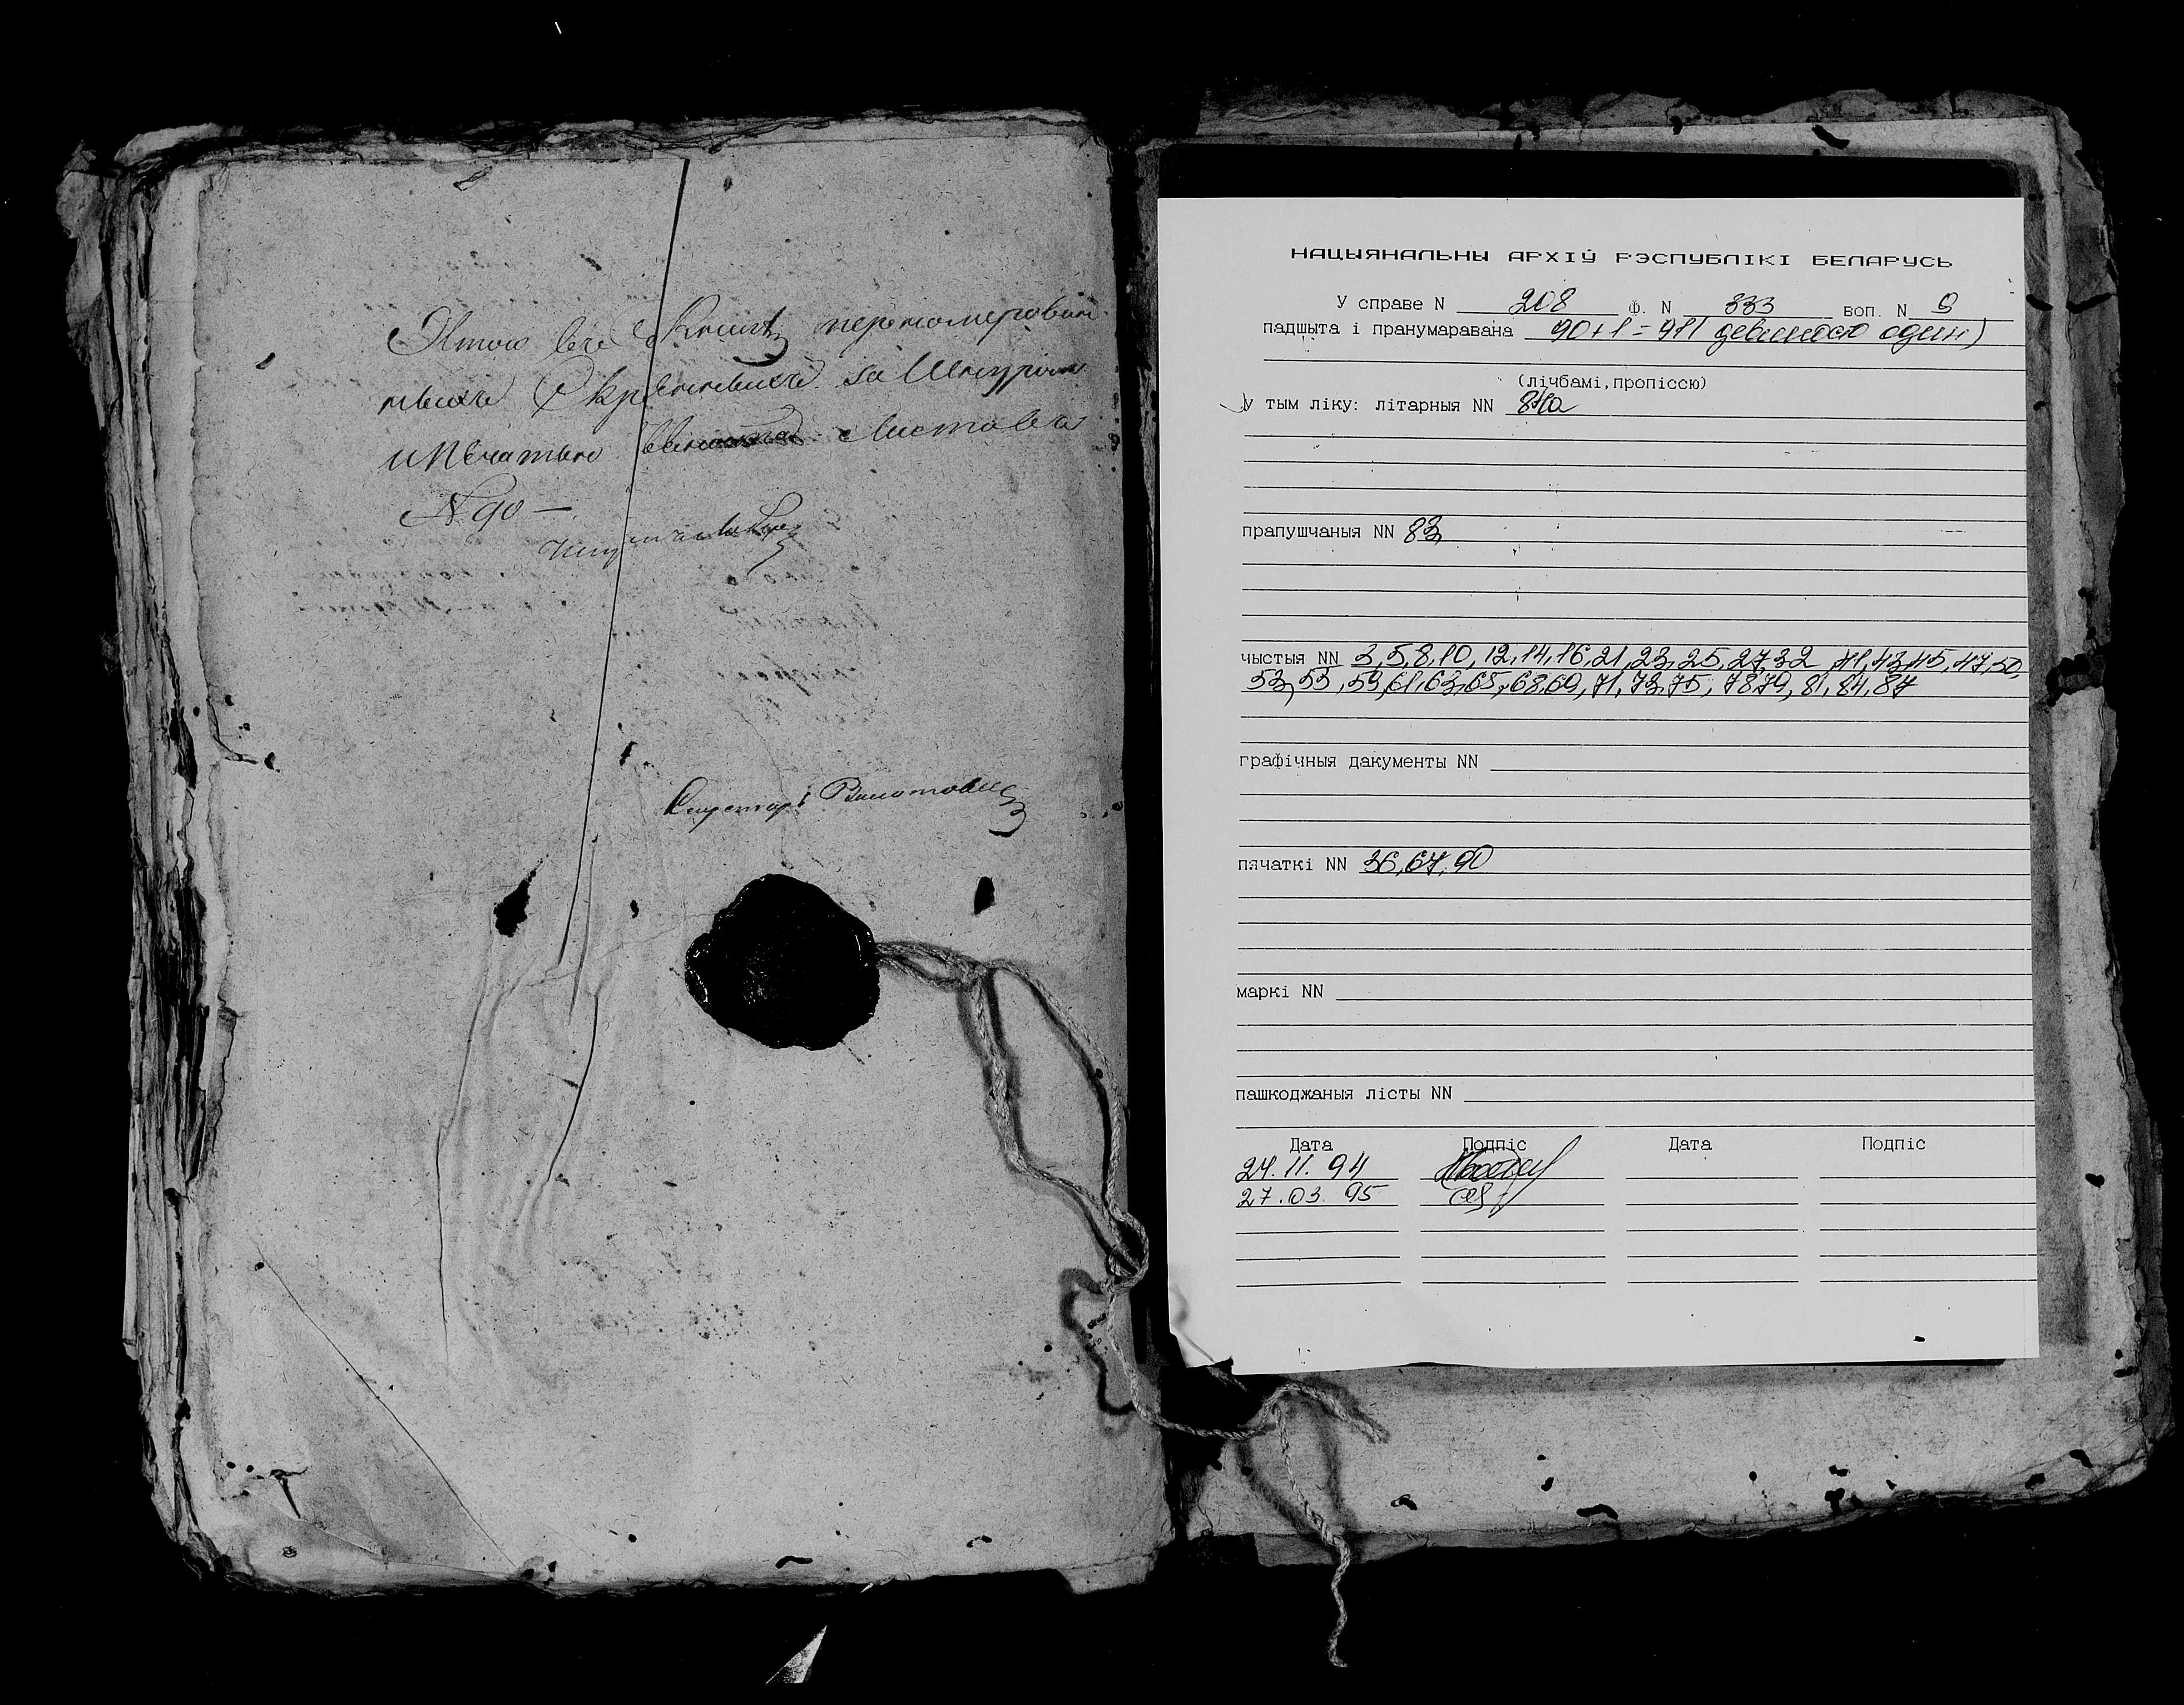 Итого въ сей Книгѣ перенумерован-
ныхъ Скрепленныхъ за Шнуромъ
и Печатью листовъ
№ 90 —
Секретарь
НАЦЫЯНАЛЬНЫ АРХІЎ РЭСПУБЛІКІ БЕЛАРУСЬ
У справе N 208 ф. N 333 воп. N 9
падшыта і пранумаравана 90+1=91 (девяносто один)
(лічбамі, пропіссю)
У тым ліку: літарныя NN 87а
прапушчаныя NN 83
чыстыя NN 3,5,8,10,12,14,16,21,23,25,27,32,41,43,45,47,50,
53,55,59,61,63,65,68,69,71,73,75,78,79,81,84,87
графічныя дакументы NN
пячаткі NN 36,67,90
маркі NN
пашкоджаныя лісты NN
Дата Подпіс Дата Подпіс
24.11.94
27.03.95